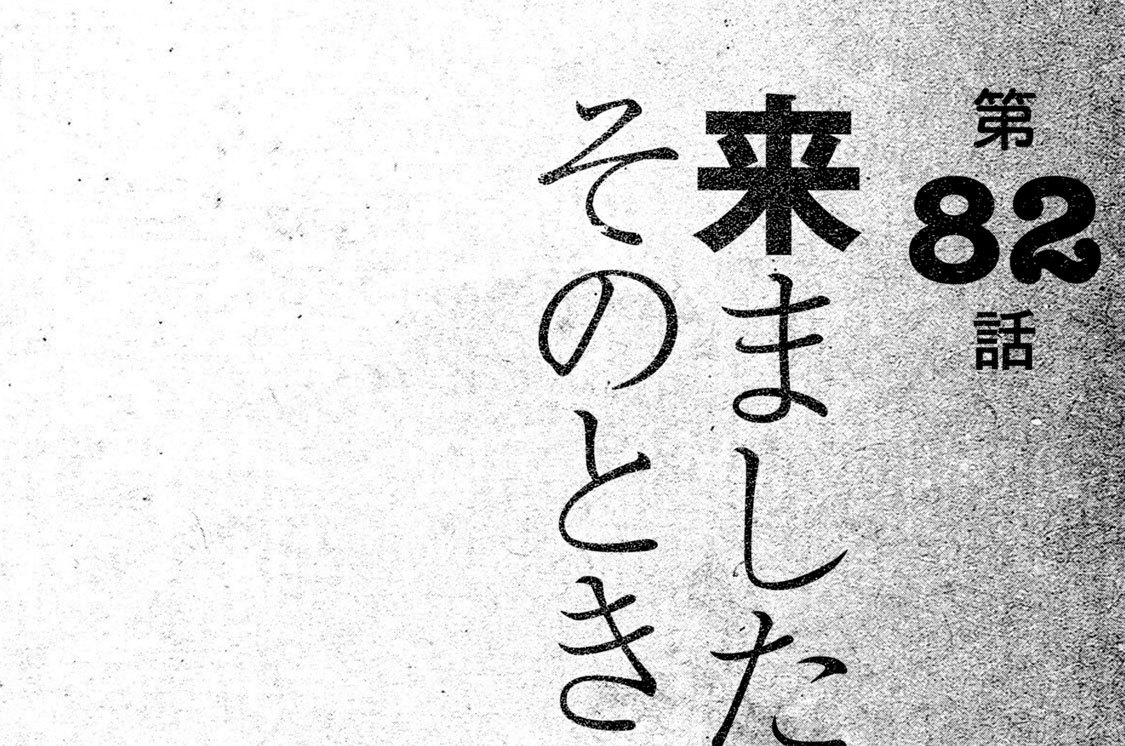 第82話
来ました
そのとき